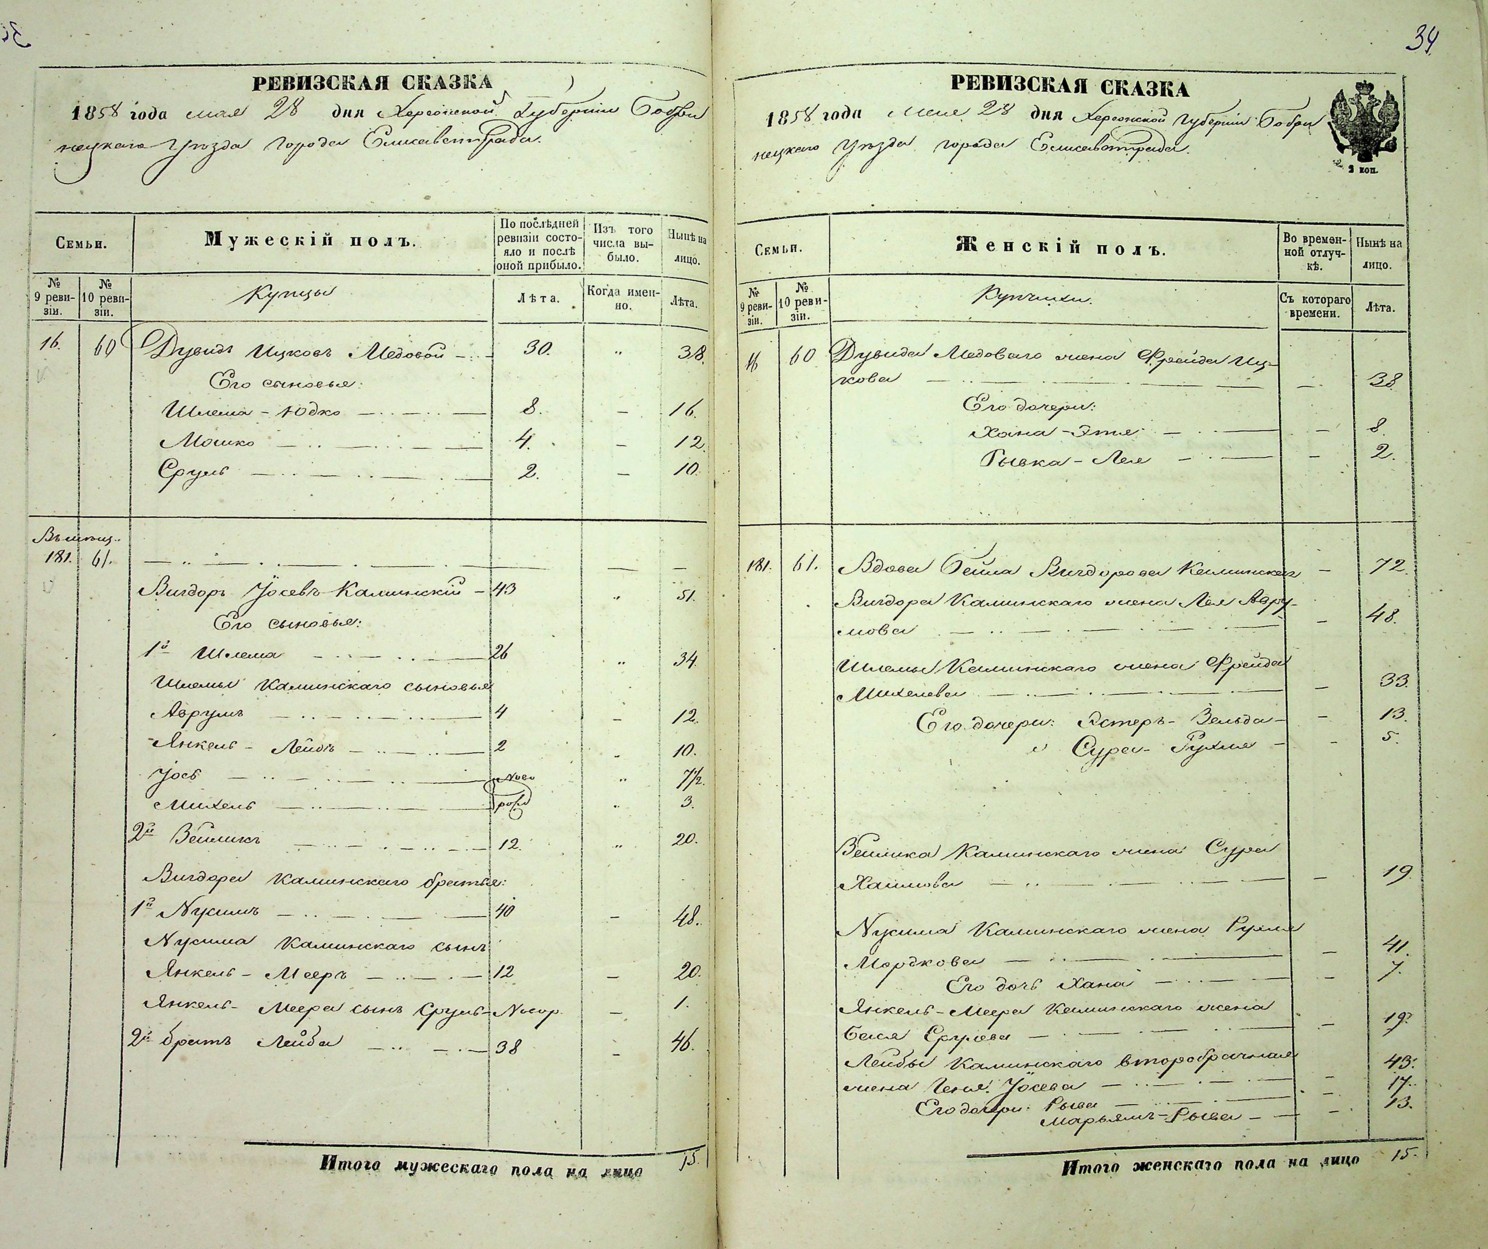 34
РЕВИЗСКАЯ СКАЗКА
1858 года мая 28 дня Херсонской Губерніи Бобри
нецкаго Уѣзда города Елисаветграда.
Семьи.
Мужескій полъ.
По послѣдней ревизіи состояло и послѣ оной прибыло.
Изъ того числа выбыло.
Нынѣ на лицо.
№ 9 ревизіи.
№ 10 ревизіи.
Купцы
Лѣта.
Когда именно.
Лѣта.
16. 60 Дувидъ Ицковъ Медовой 30. „ 38.
Его сыновья:
Шлема-Юдко 8. — 16.
Мошко 4. — 12.
Сруль 2. — 10.
181. 61.
Вигдоръ Іосевъ Каминскій 43 „ 51.
Его сыновья:
1й Шлема 26 „ 34.
Шлемы Каминскаго сыновья
Аврумъ 4 — 12.
Янкель-Лейбъ 2 „ 10.
Іось „ 7 1/2.
Михель „ 3.
2й Вешликъ 12. „ 20.
Вигдора Каминскаго братья:
1й Нусимъ 40 — 48.
Нусима Каминскаго сынъ
Янкель-Мееръ 12 — 20.
Янкель-Меера сынъ Сруль — 1.
2й братъ Лейба 38 — 46.
Итого мужескаго пола на лицо 15.
РЕВИЗСКАЯ СКАЗКА
1858 года мая 28 дня Херсонской Губерніи Бобри
нецкаго Уѣзда города Елисаветграда.
2 коп.
Семьи.
Женскій полъ.
Во временной отлучкѣ.
Нынѣ на лицо.
№ 9 ревизіи.
№ 10 ревизіи.
Купчихи.
Съ котораго времени.
Лѣта.
16 60 Дувида Медоваго жена Фрейда Иц-
кова — 38
Его дочери:
Хана-Этя — 8.
Рывка-Лея — 2.
181. 61. Вдова Бейла Вигдорова Каминская — 72.
Вигдора Каминскаго жена Лея Авру-
мова — 48.
Шлемы Каминскаго жена Фрейда
Михелева — 33.
Его дочери: Эстеръ-Зельда — 13.
„ Сура-Рухля — 5.
Каминскаго жена Сура
Хаимова — 19
Нусима Каминскаго жена Рухля
Мордкова — 41.
Его дочь Хана 7.
Янкель-Меера Каминскаго жена
Бася Срулева — 19
Лейбы Каминскаго второбрачная
жена Геня Іосева — 43.
Его дочери: Рыва — 17.
Марьямъ-Рыва — 13.
Итого женскаго пола на лицо 15.